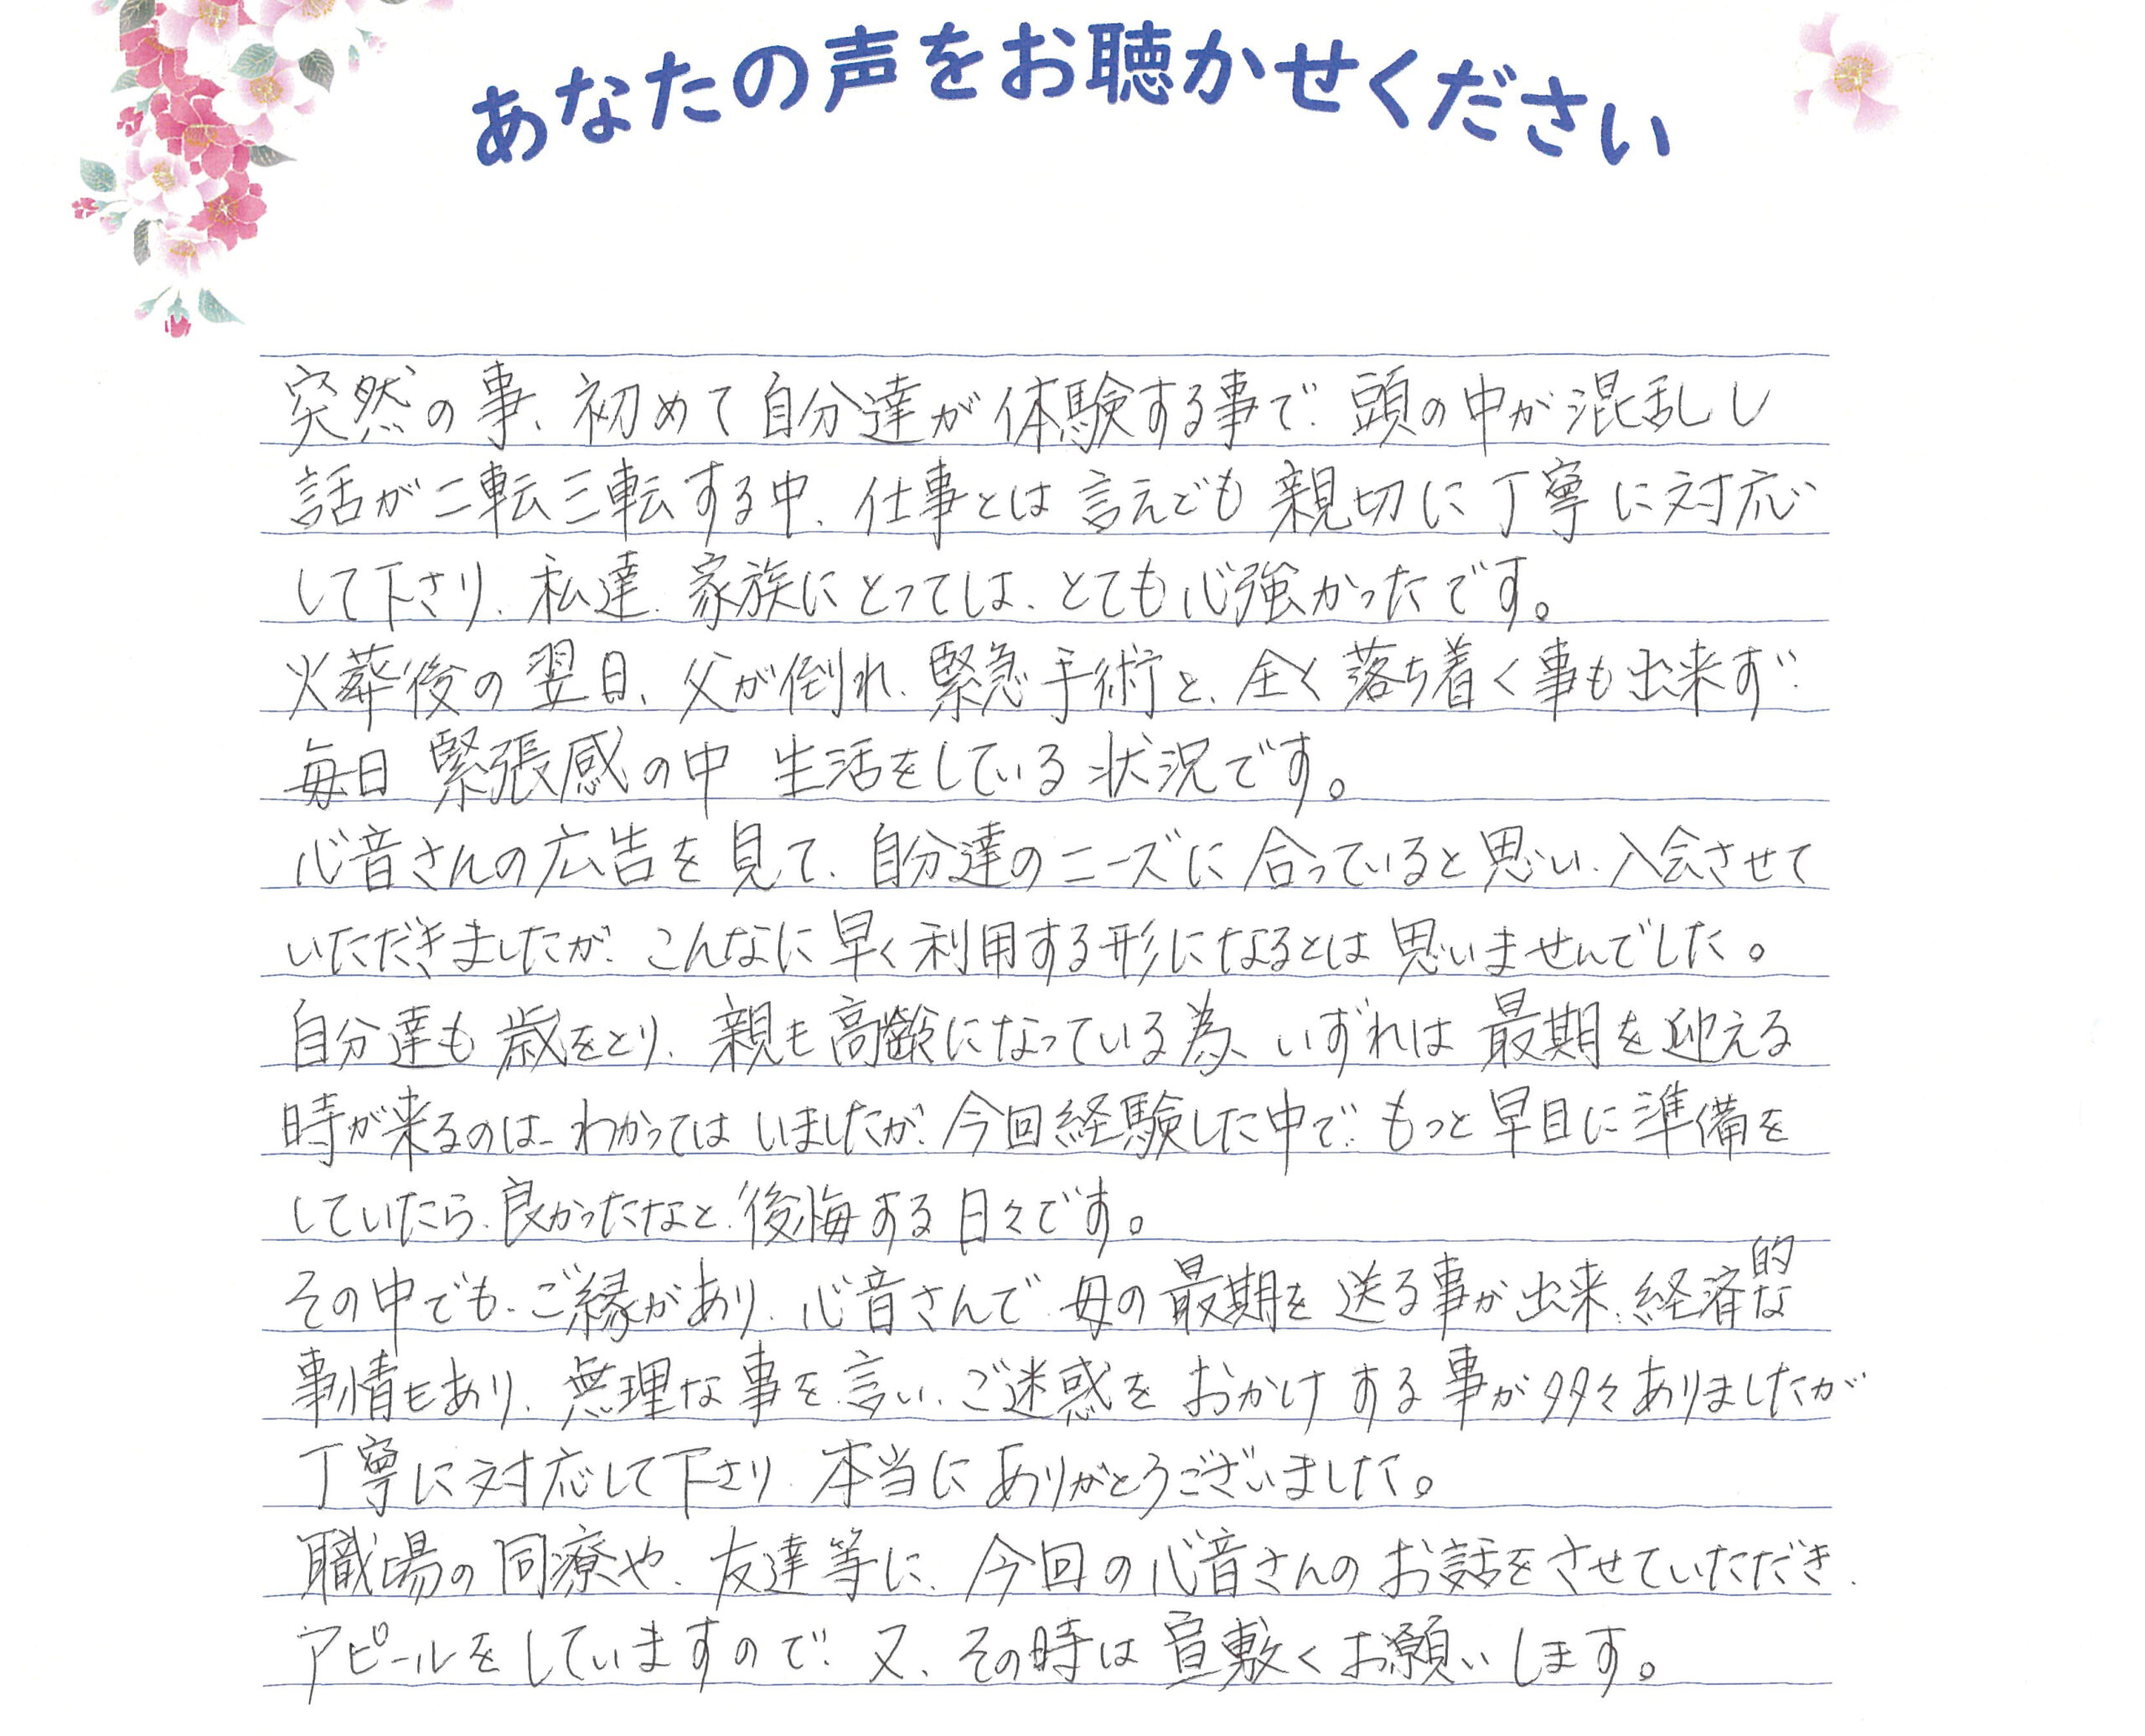 あなたの声をお聴かせください
突然の事、初めて自分達が体験する事で、頭の中が混乱し
話が二転三転する中、仕事とは言えども親切に丁寧に対応
して下さり、私達、家族にとっては、とても心強かったです。
火葬後の翌日、父が倒れ、緊急手術と、全く落ち着く事も出来ず、
毎日緊張感の中 生活をしている状況です。
心音さんの広告を見て、自分達のニーズに合っていると思い、入会させて
いただきましたが、こんなに早く利用する形になるとは思いませんでした。
自分達も歳をとり、親も高齢になっている為、いずれは最期を迎える
時が来るのは、わかってはいましたが、今回経験した中で、もっと早目に準備を
していたら、良かったなと、後悔する日々です。
その中でも、ご縁があり、心音さんで、母の最期を送る事が出来、経済的な
事情もあり、無理な事を言い、ご迷惑をおかけする事が多々ありましたが
丁寧に対応して下さり、本当にありがとうございました。
職場の同療や、友達等に、今回の心音さんのお話をさせていただき、
アピールをしていますので、又、その時は宣敷くお願いします。